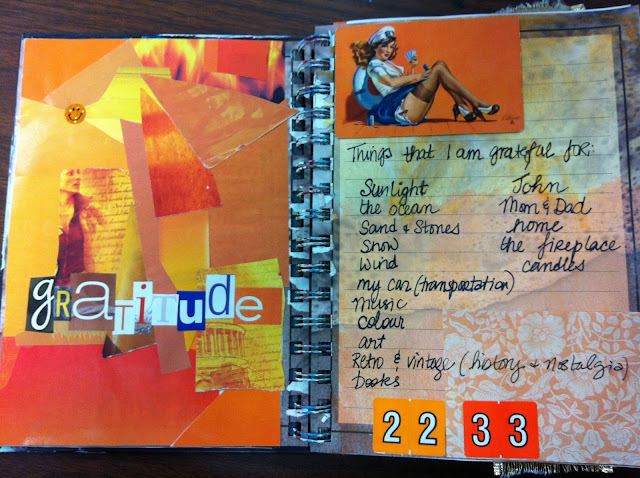 gRatitude
Things that I am grateful for:
Sunlight
the ocean
Sand & Stones
Snow
Wind
my car (transportation)
Music
colour
art
Retro & vintage (history & nostalgia)
books
John
Mom & Dad
home
the fireplace
candles
22 33